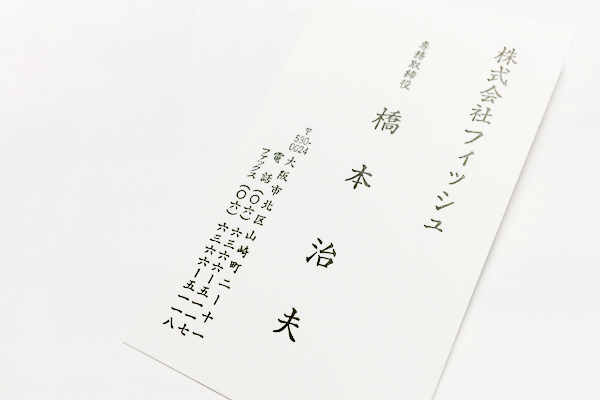 株式会社フィッシュ
専務取締役
橋本治夫
〒530-0024
大阪市北区山崎町二ー十
電話(〇六)六三六六ー五一一七
ファックス(〇六)六三六六ー五一一八